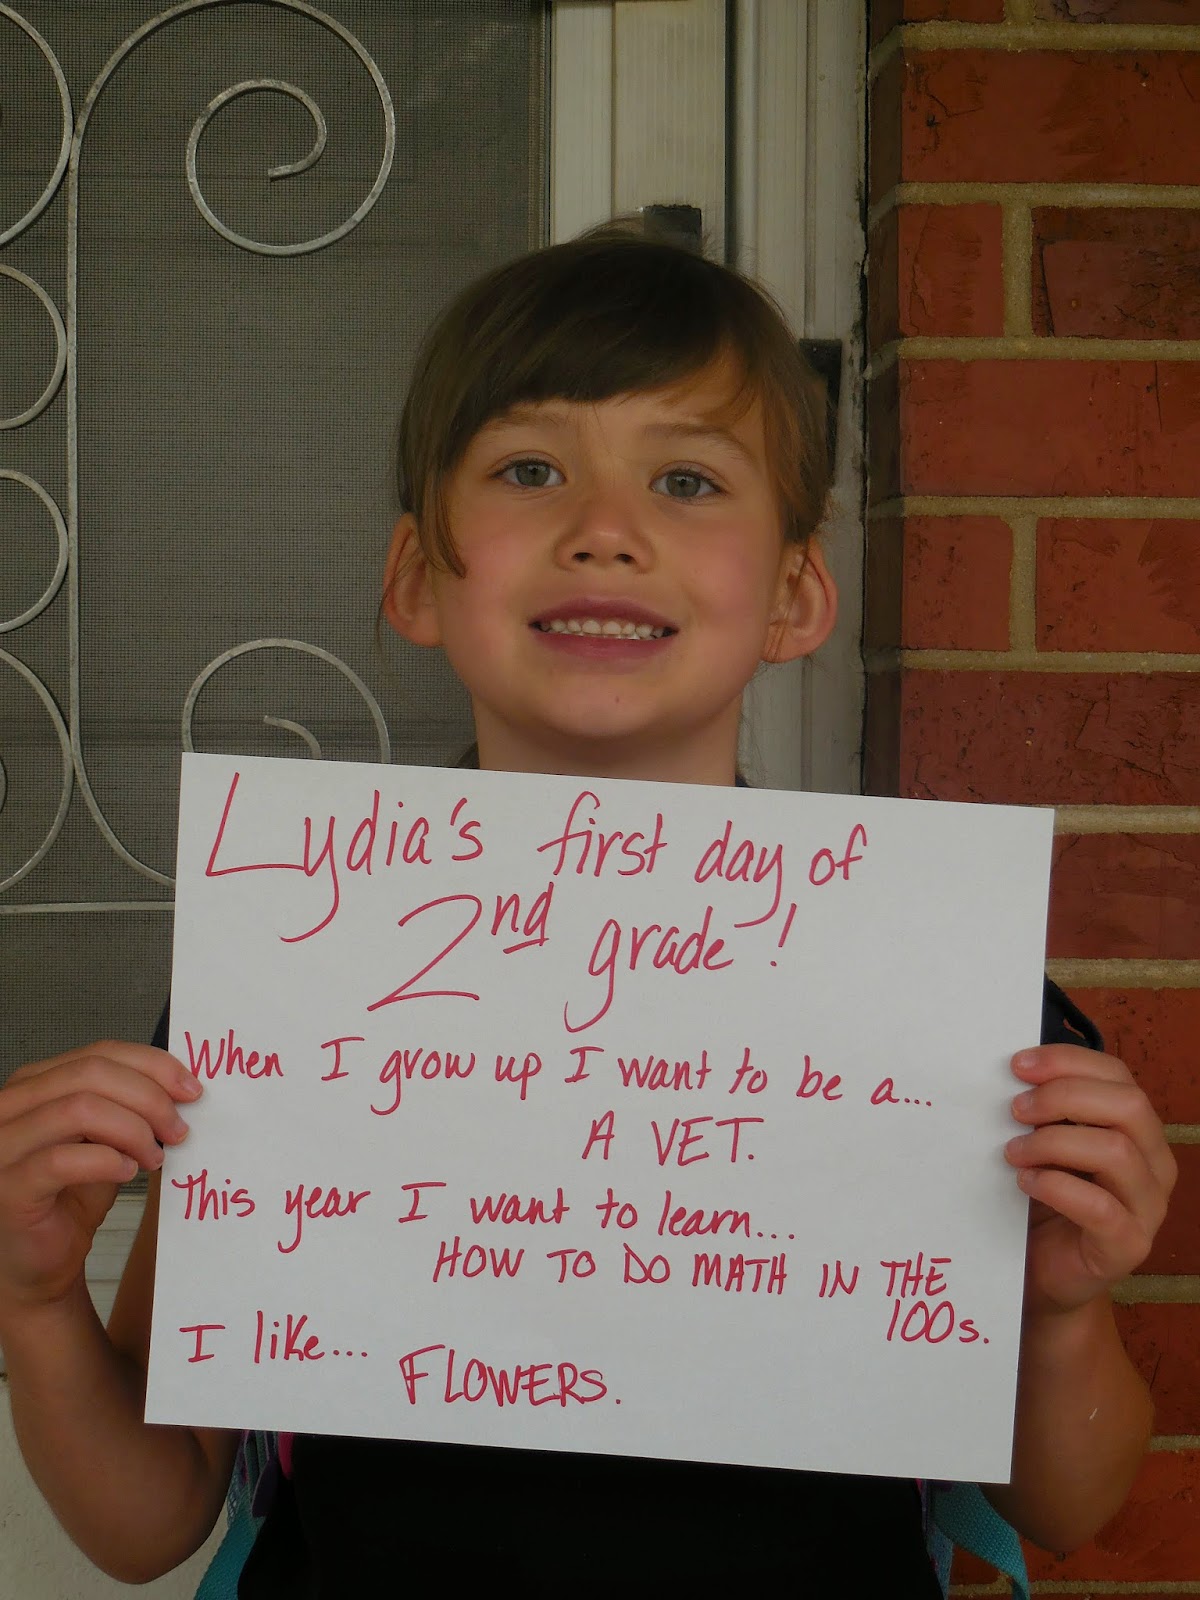 Lydia's first day of
2nd grade!
When I grow up I want to be a...
A VET.
This year I want to learn...
HOW TO DO MATH IN THE
100s.
I like...
FLOWERS.